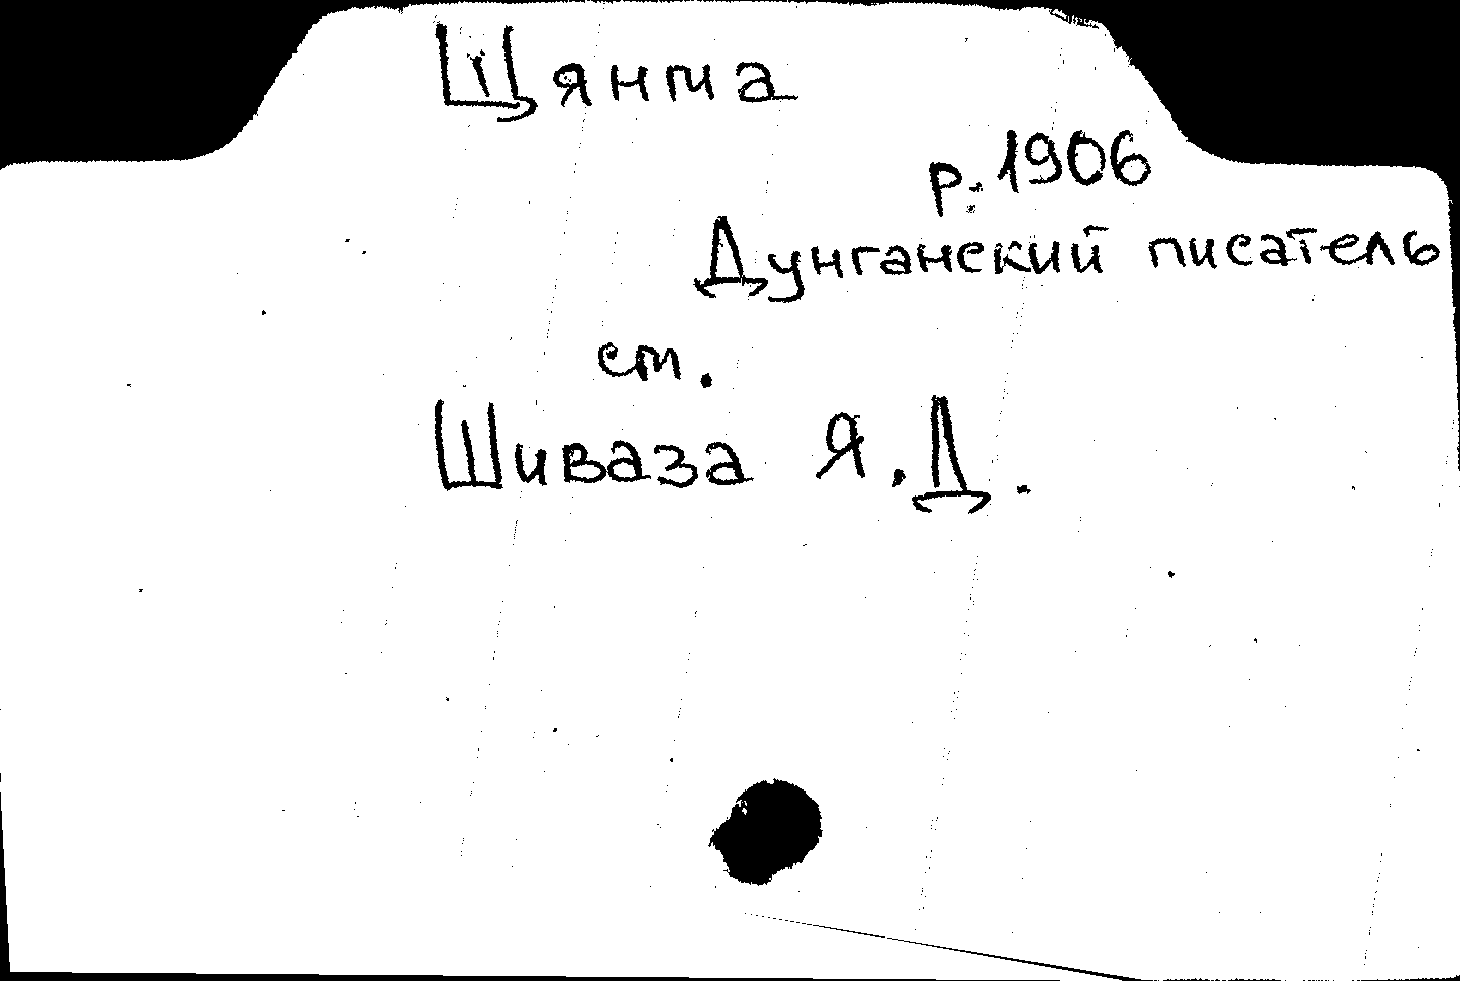 Щянма
р. 1906
Дунганский писатель
см.
Шиваза Я.Д.